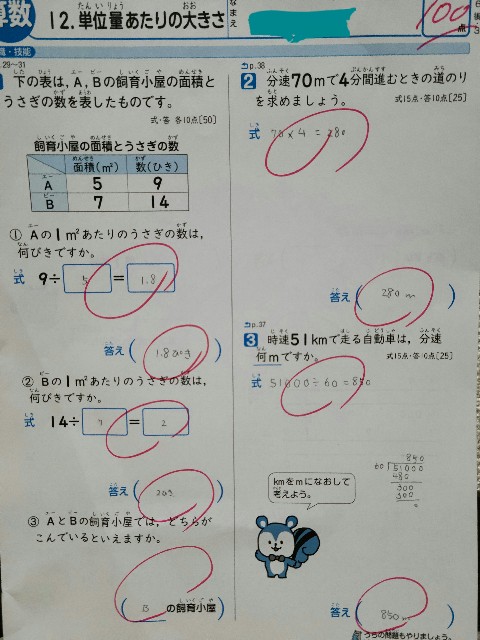 算数
12.単位量あたりの大きさ
なまえ
100
点
識・技能
.29〜31
下の表は，A，Bの飼育小屋の面積と
うさぎの数を表したものです。
式・答 各10点[50]
飼育小屋の面積とうさぎの数
面積(m²) 数(ひき)
A 5 9
B 7 14
① Aの1m²あたりのうさぎの数は，
何びきですか。
式 9÷5=1.8
答え(1.8ひき)
② Bの1m²あたりのうさぎの数は，
何びきですか。
式 14÷7=2
答え(2ひき)
③ AとBの飼育小屋では，どちらが
こんでいるといえますか。
(Bの飼育小屋)
p.38
2 分速70mで4分間進むときの道のり
を求めましょう。
式15点・答10点[25]
式 70×4=280
答え(280m)
p.37
3 時速51kmで走る自動車は，分速
何mですか。
式15点・答10点[25]
式 51000÷60=850
850
60 51000
480
300
300
0
kmをmになおして
考えよう。
答え(850m)
うらの問題もやりましょう。